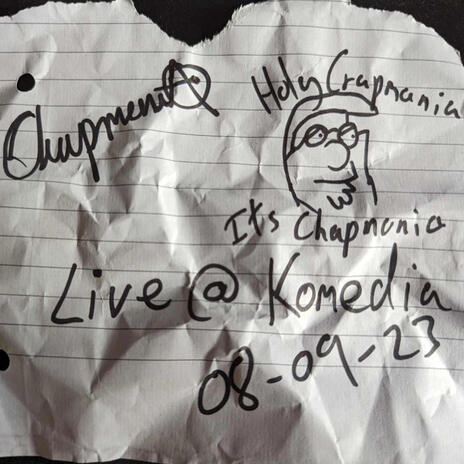 Chapmania
Holy Crapmania
Its Chapmania
Live @ Komedia
08-09-23